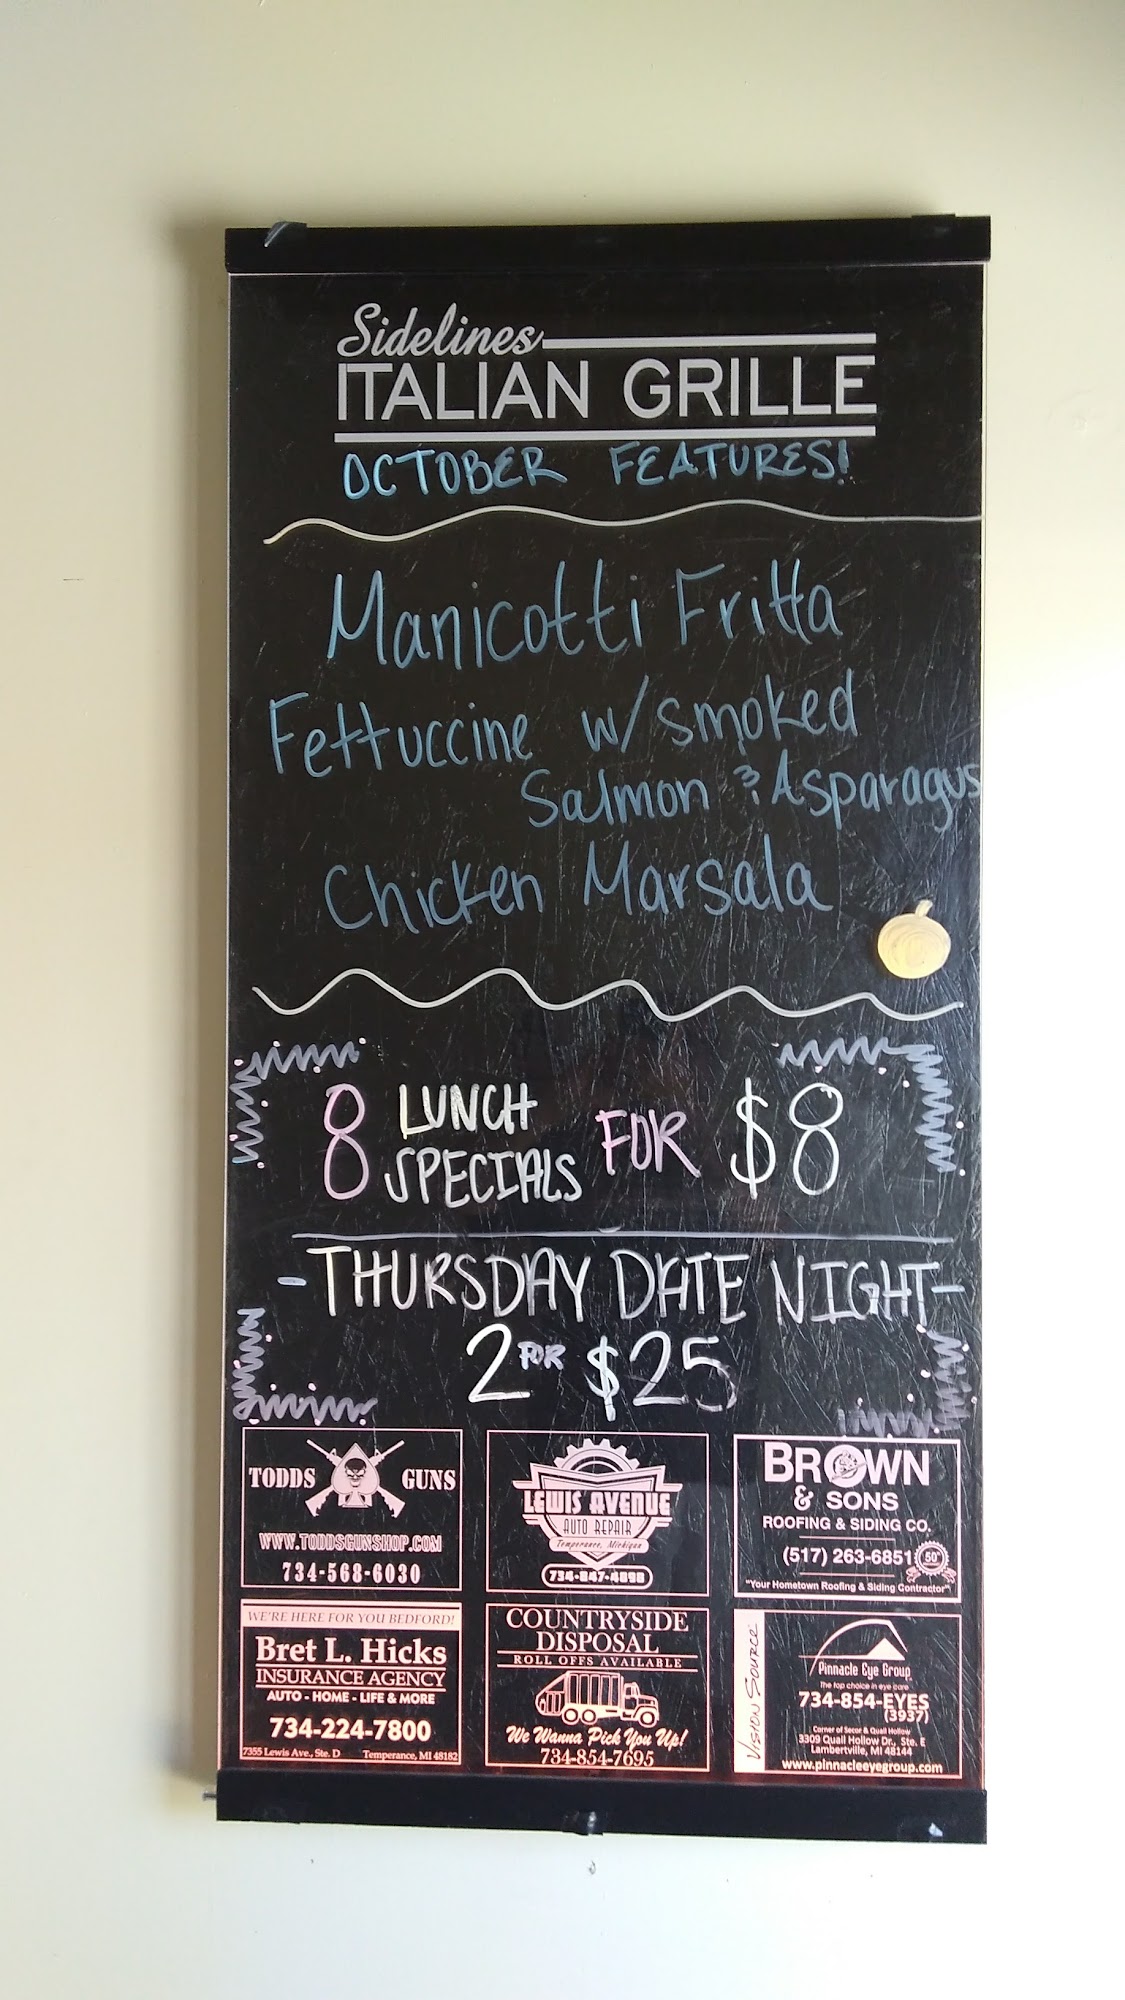 Sidelines
ITALIAN GRILLE
OCTOBER FEATURES!
Manicotti Fritta
Fettuccine w/smoked
Salmon & Asparagus
Chicken Marsala
8 LUNCH SPECIALS FOR $8
-THURSDAY DATE NIGHT-
2 FOR $25
TODDS GUNS
WWW.TODDSGUNSHOP.COM
734-568-6030
LEWIS AVENUE
AUTO REPAIR
Temperance, Michigan
734-847-4898
BROWN
& SONS
ROOFING & SIDING CO.
(517) 263-6851
50
"Your Hometown Roofing & Siding Contractor"
WE'RE HERE FOR YOU BEDFORD!
Bret L. Hicks
INSURANCE AGENCY
AUTO - HOME - LIFE & MORE
734-224-7800
7355 Lewis Ave., Ste. D Temperance, MI 48182
COUNTRYSIDE
DISPOSAL
ROLL OFFS AVAILABLE
We Wanna Pick You Up!
734-854-7695
VISION SOURCE
Pinnacle Eye Group
The top choice in eye care
734-854-EYES
(3937)
Corner of Secor & Quail Hollow
3309 Quail Hollow Dr., Ste. E
Lambertville, MI 48144
www.pinnacleeyegroup.com